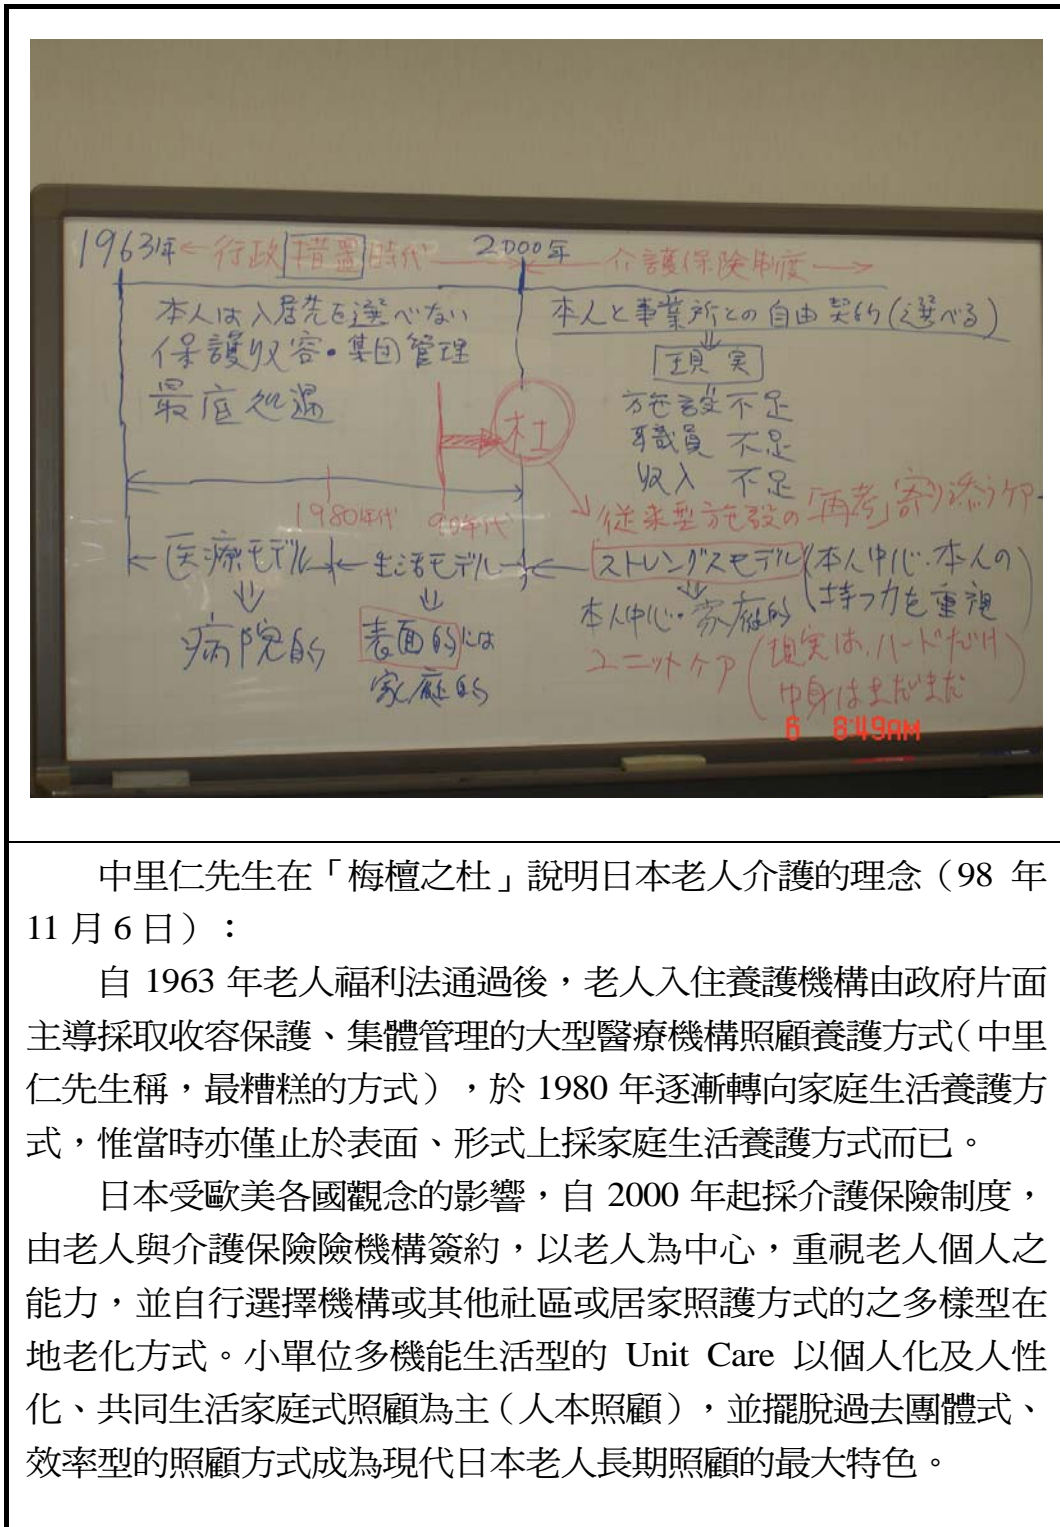 1963年←行政措置時代→ 2000年 ←介護保険制度→
本人は入居先を選べない 本人と事業所との自由契約(選べる)
保護収容・集団管理 ⇓
最底処遇 現実
施設不足
職員 不足
収入 不足
杜
1980年代 90年代 →従来型施設の「再考」寄り添うケア
←医療モデル→←生活モデル→←ストレングスモデル(本人中心・本人の
⇓ ⇓ ⇓ 持つ力を重視)
病院的 表面的には 本人中心・家庭的
家庭的 ユニットケア(現実は、ハードだけ
中身はまだまだ)
6 8:49AM
中里仁先生在「栴檀之杜」說明日本老人介護的理念(98 年
11 月 6 日):
自 1963 年老人福利法通過後,老人入住養護機構由政府片面
主導採取收容保護、集體管理的大型醫療機構照顧養護方式(中里
仁先生稱,最糟糕的方式),於 1980 年逐漸轉向家庭生活養護方
式,惟當時亦僅止於表面、形式上採家庭生活養護方式而已。
日本受歐美各國觀念的影響,自 2000 年起採介護保險制度,
由老人與介護保險險機構簽約,以老人為中心,重視老人個人之
能力,並自行選擇機構或其他社區或居家照護方式的之多樣型在
地老化方式。小單位多機能生活型的 Unit Care 以個人化及人性
化、共同生活家庭式照顧為主(人本照顧),並擺脫過去團體式、
效率型的照顧方式成為現代日本老人長期照顧的最大特色。